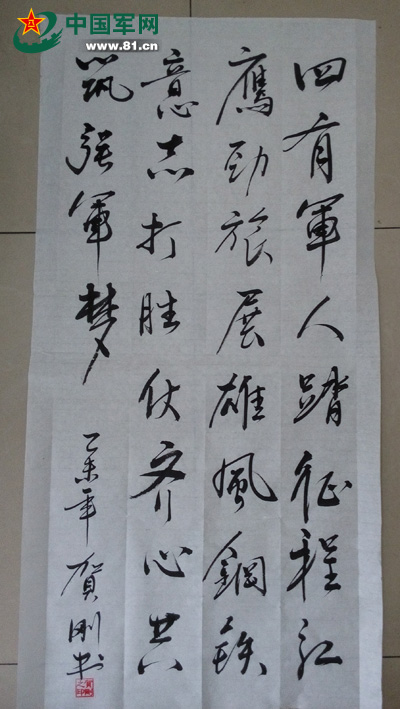 中国军网
www.81.cn
四有軍人踏征程红
鹰劲旅展雄風鋼铁
意志打胜仗齐心共
筑强軍梦
乙未年 贺刚书